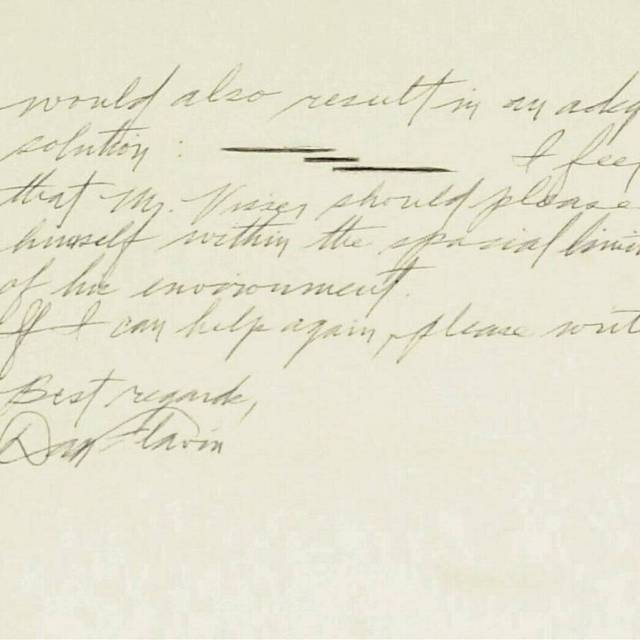 would also result in an adq
solution :
I feel
that Mr. Visser should please
himself within the spacial limi
of his environment.
If I can help again, please writ
Best regards,
Dan Flavin